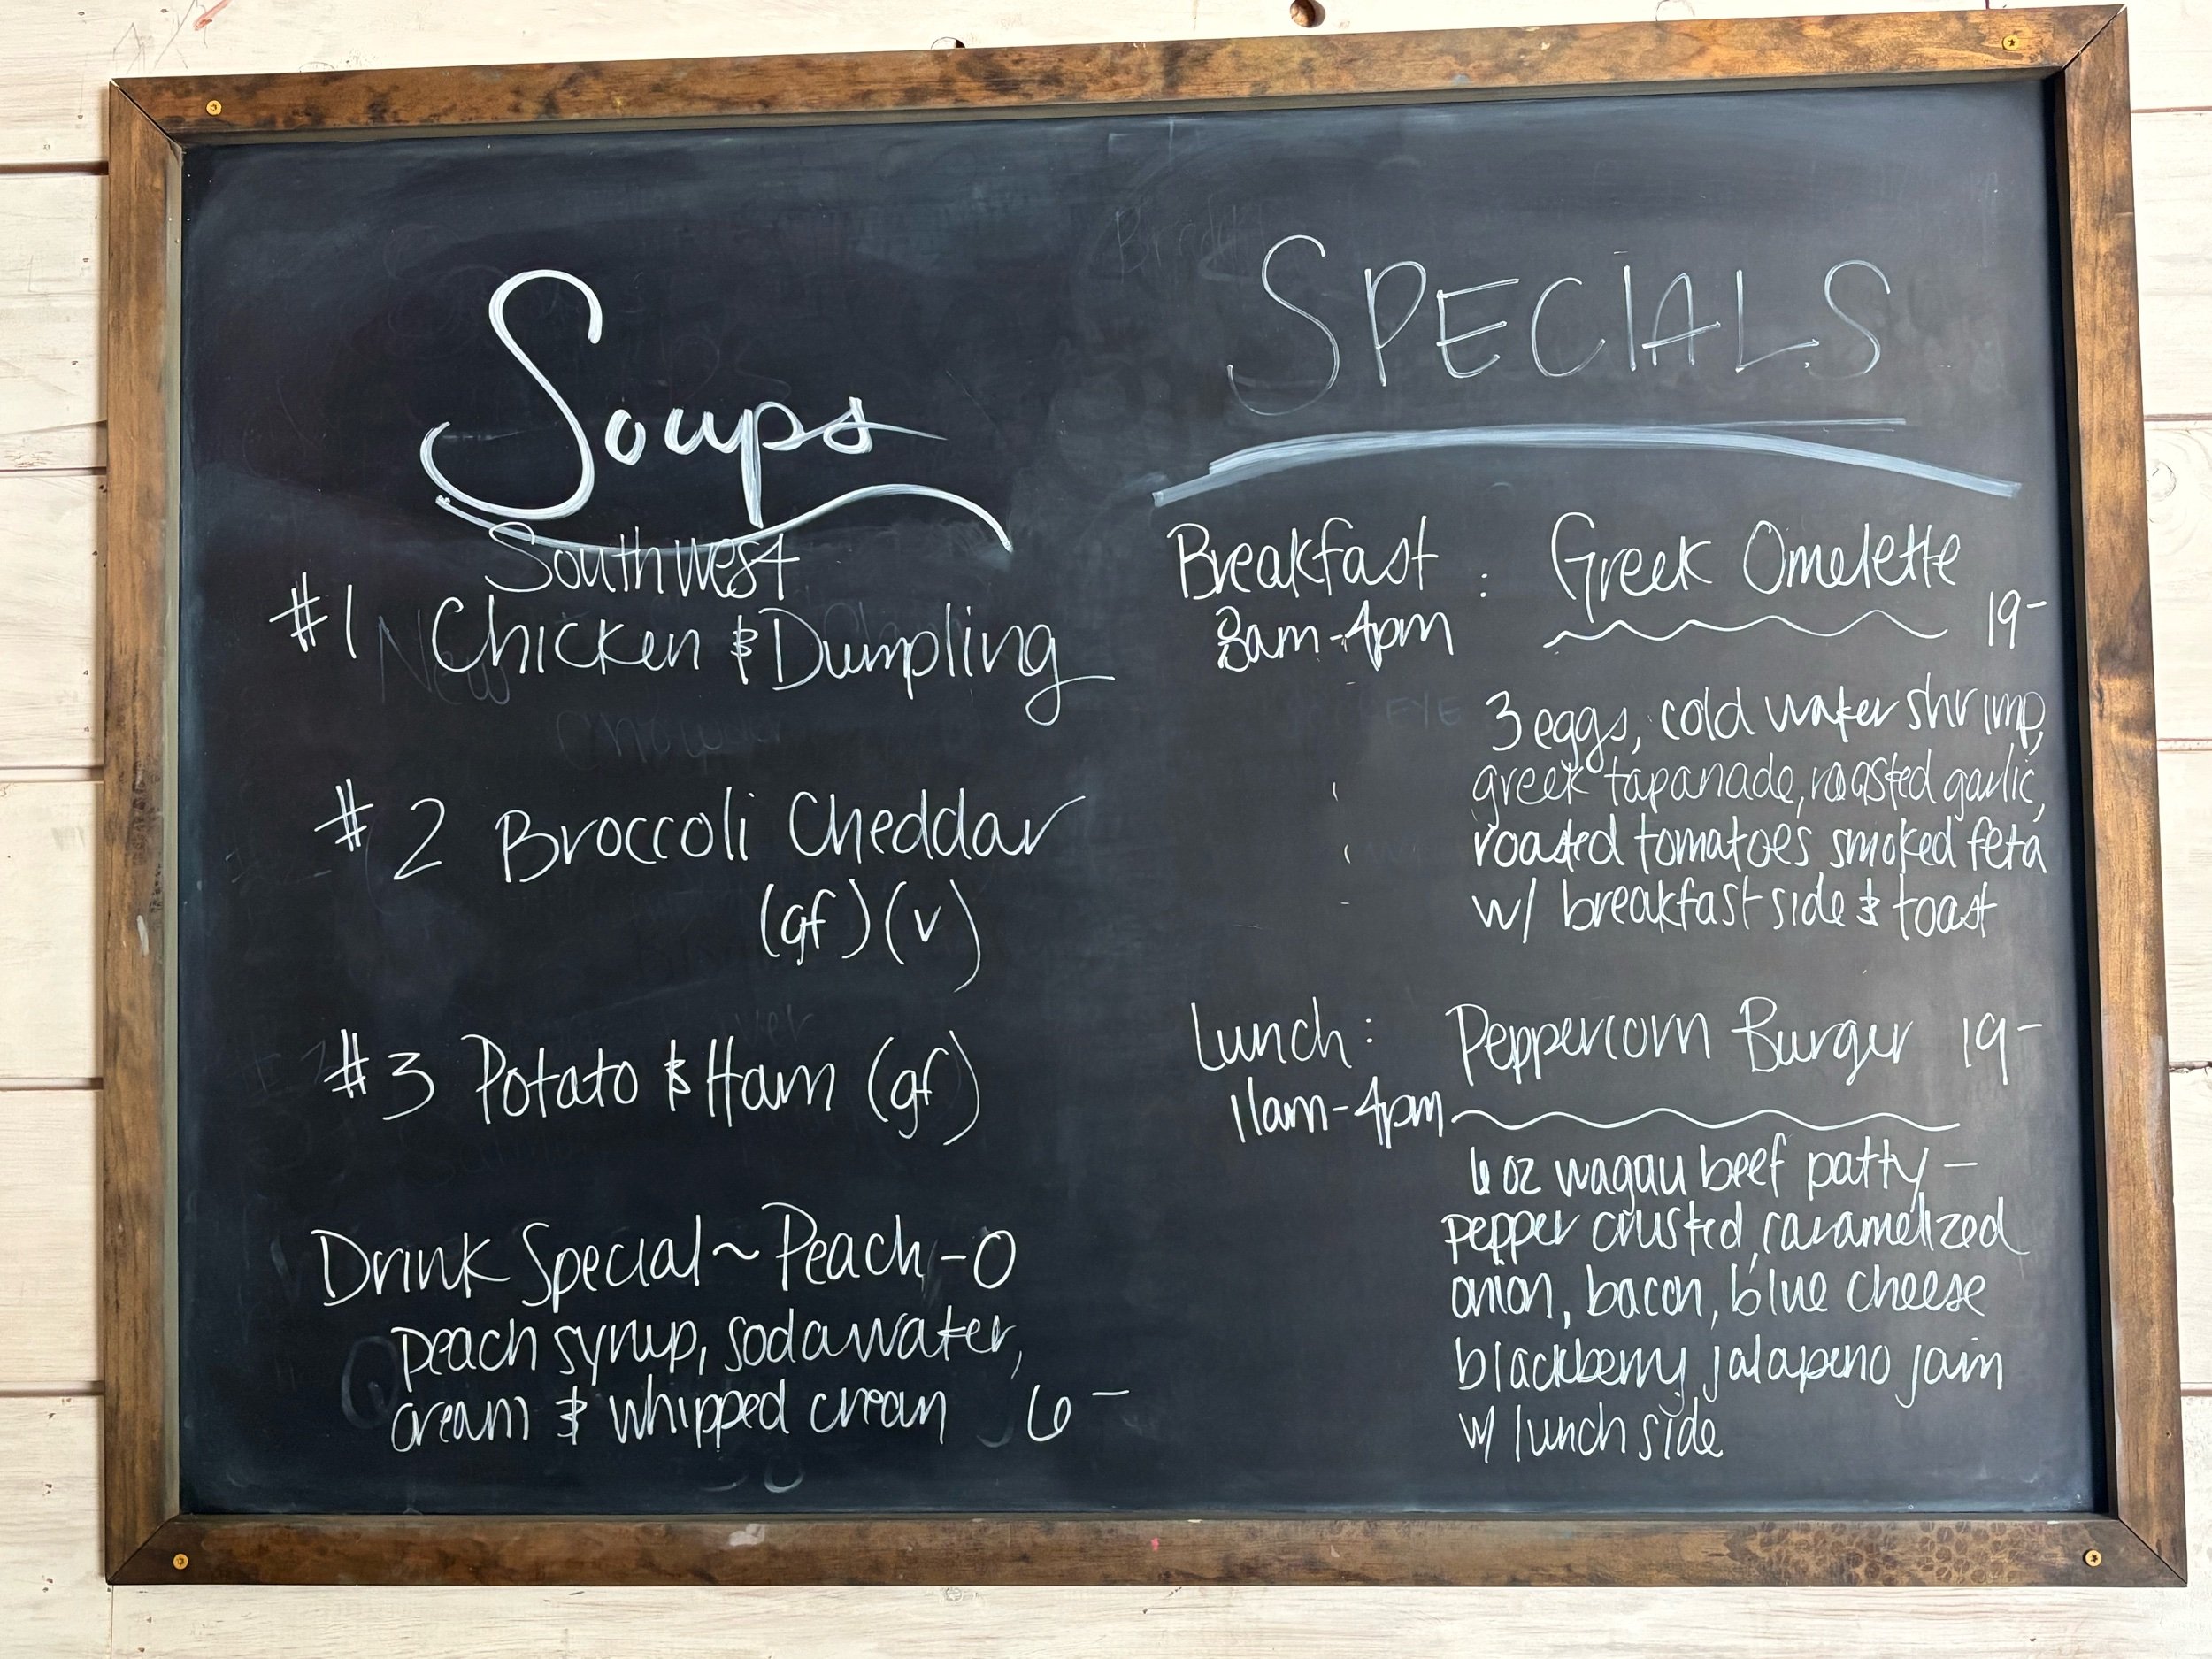 Soups
Southwest
#1 Chicken & Dumpling
#2 Broccoli Cheddar
(gf)(v)
#3 Potato & Ham (gf)
Drink Special ~ Peach-O
peach syrup, soda water,
cream & whipped cream 6-
SPECIALS
Breakfast : Greek Omelette
8am-4pm 19-
3 eggs, cold water shrimp,
greek tapanade, roasted garlic,
roasted tomatoes smoked feta
w/ breakfast side & toast
Lunch: Peppercorn Burger 19-
11am-4pm
6 oz wagau beef patty -
pepper crusted, caramelized
onion, bacon, blue cheese
blackberry jalapeno jam
w/ lunch side